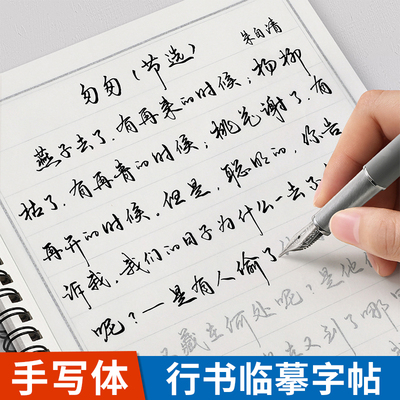 匆匆(节选)
朱自清
燕子去了,有再来的时候;杨柳
枯了,有再青的时候;桃花谢了,有
再开的时候。但是,聪明的,你告
诉我,我们的日子为什么一去
呢?—是有人偷了
藏在何处呢?是他
又到了哪
手写体
行书临摹字帖